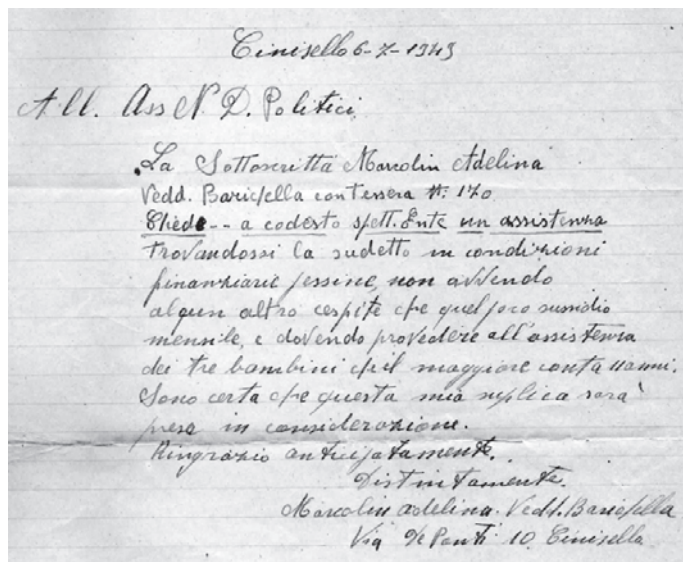 Cinisello 6-7-1945
All. Ass N. P. Politici
La Sottoscritta Marcolin Adelina
Vedd. Barichella con tessera N: 170
Chiede-- a codesto spett. Ente un assistenza
trovandossi la sudetto in condizioni
finanziarie pessine, non avvendo
alqun altro cespite che quel poco sussidio
mensile, e dovendo provedere all'assistenza
dei tre bambini che il maggiore conta 11 anni.
Sono certa che questa mia suplica sarà
presa in considerazione.
Ringrazio anticipatamente.
Distintamente.
Marcolin Adelina. Vedd. Barichella
Via De Ponti 10 Cinisello